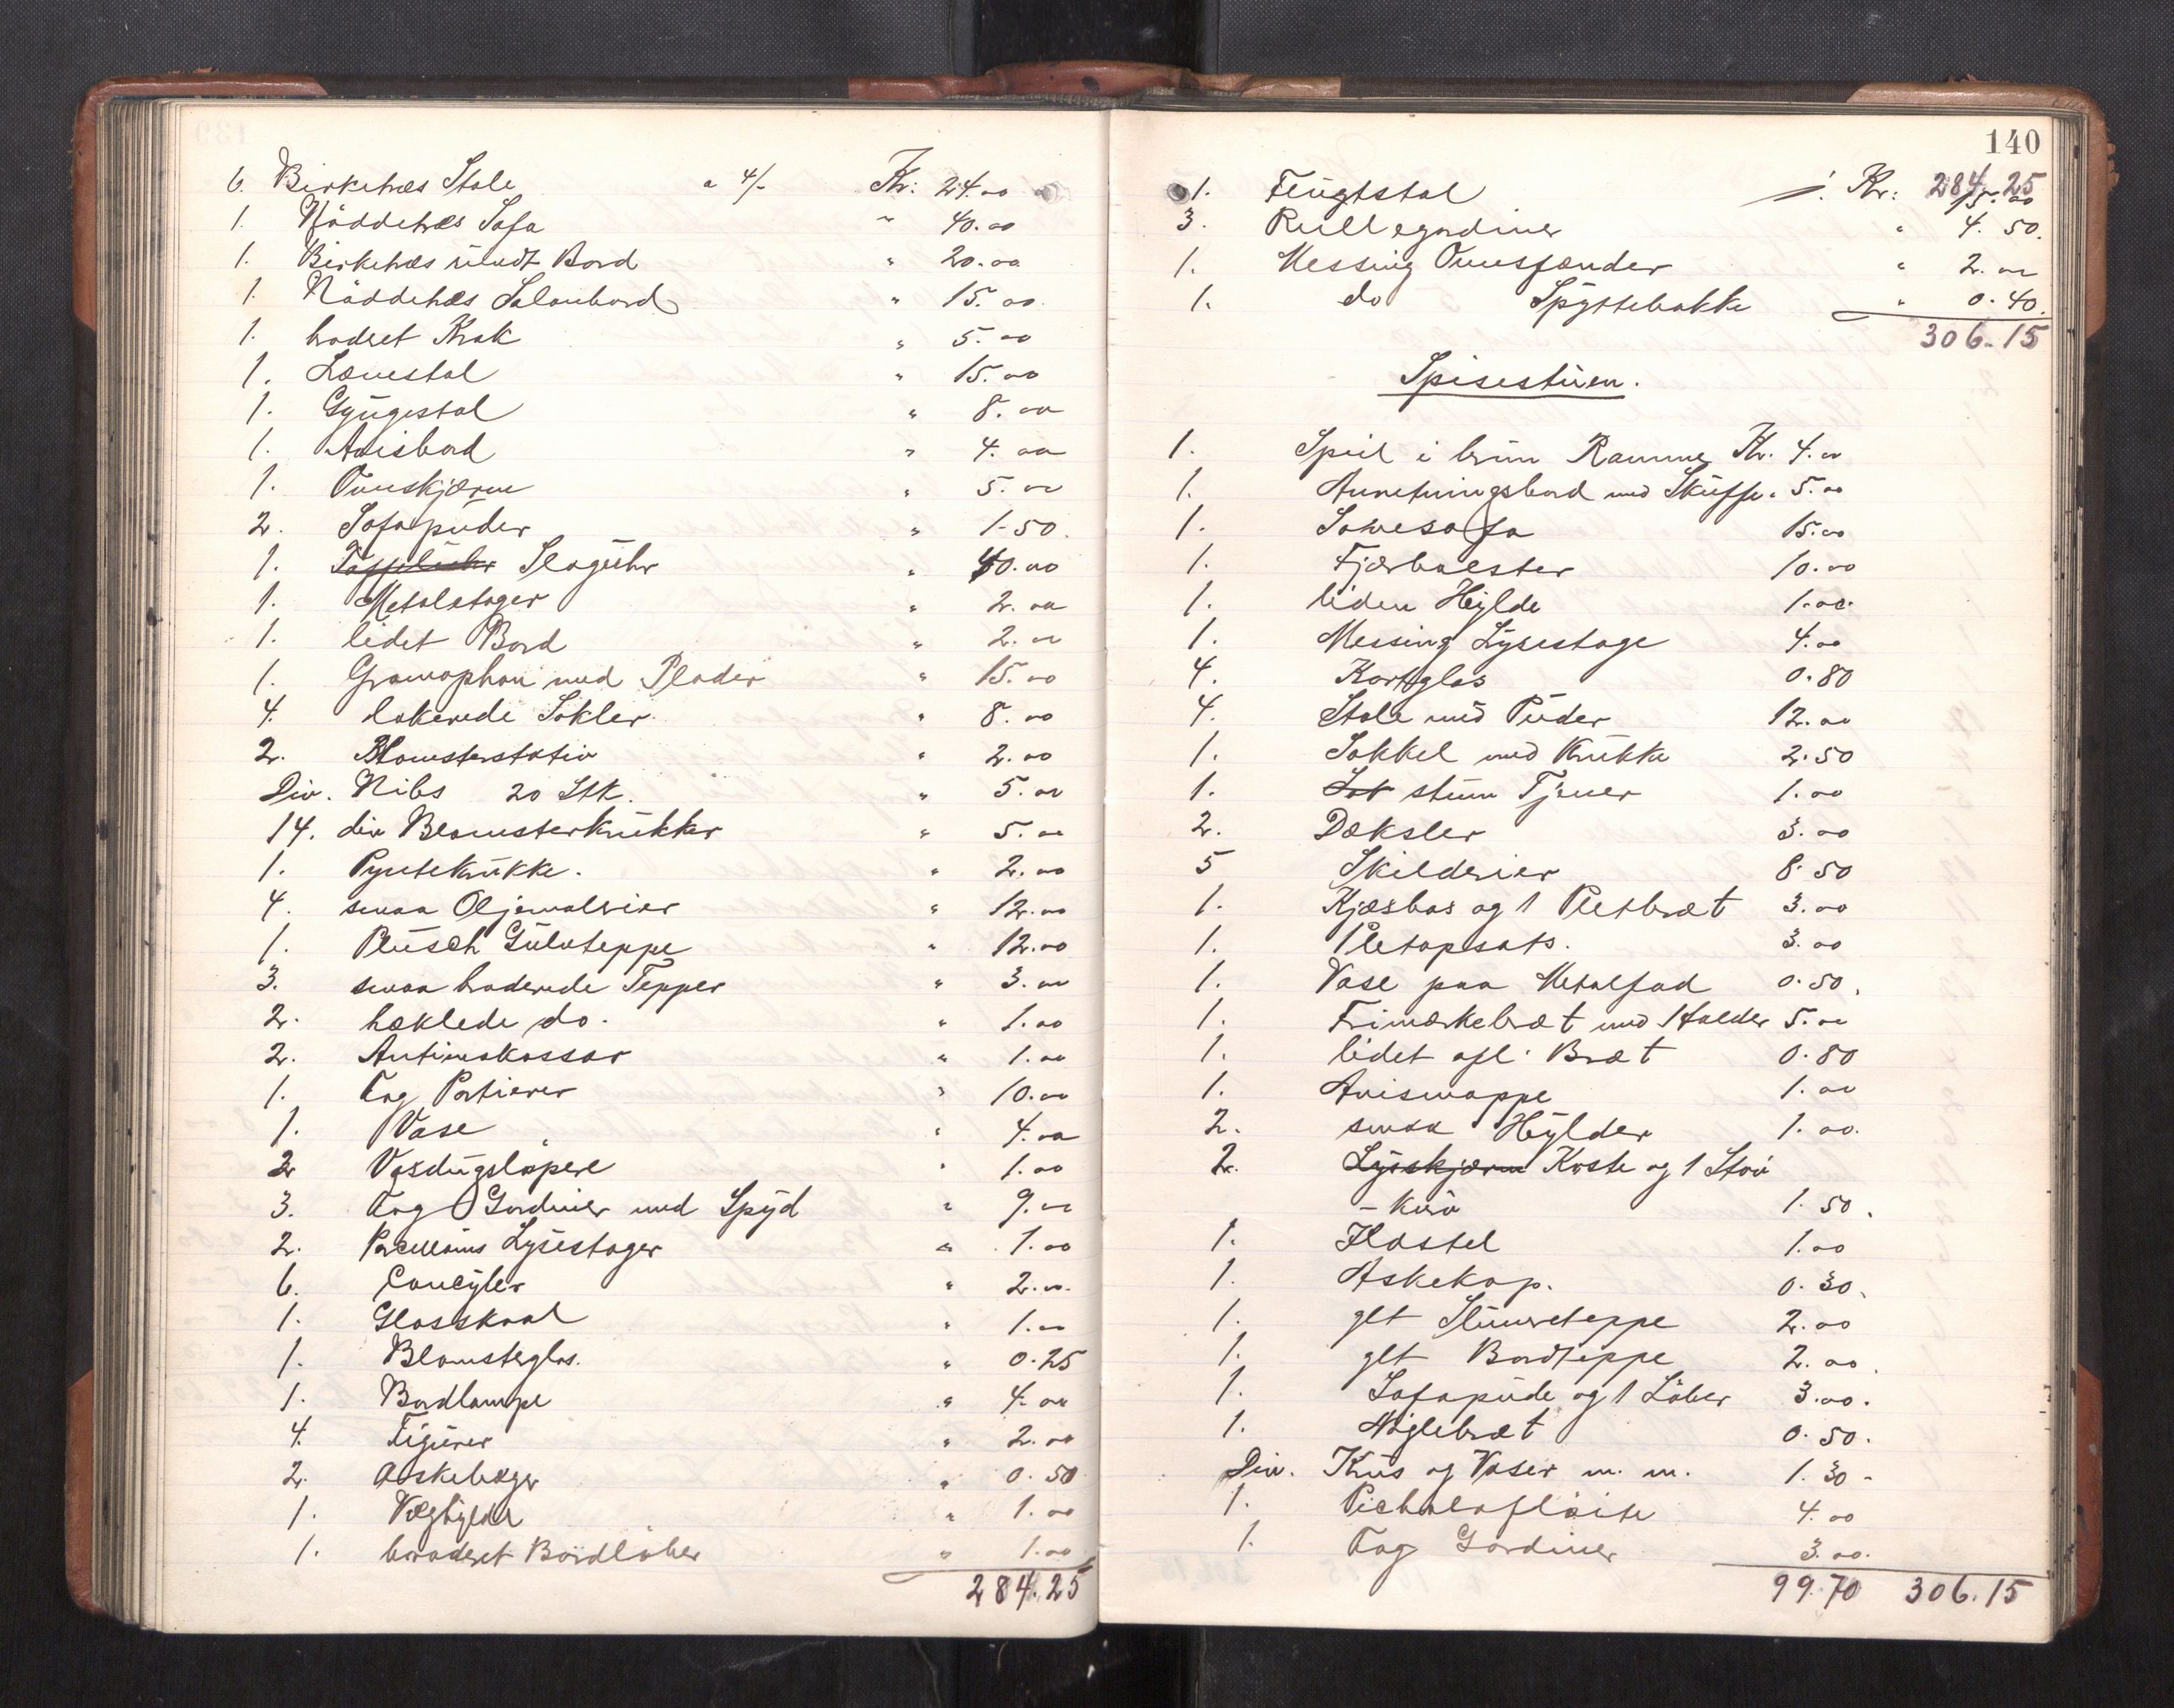 6. Birketræs Stole a 4/- Kr: 24.00
1. Nöddetræs Sofa " 40.00
1. Birketræs rundt Bord " 20.00
1. Nöddetræs Salonbord " 15.00
1. broderet Krak " 5.00
1. Lænestol " 15.00
1. Gyngestol " 8.00
1. Avisbord " 4.00
1. Ovnskjærm " 5.00
2. Sofapuder " 1.50
1. Taffeluhr Slaguhr " 40.00
1. Metalstager " 2.00
1. lidet Bord " 2.00
1. Gramophon med Plader " 15.00
4. lakerede Sokler " 8.00
2. Blomsterstativ " 2.00
Div. Nibs 20 Stk. " 5.00
14. div Blomsterkrukker " 5.00
1. Pyntekrukke. " 2.00
4. smaa Oljemalerier " 12.00
1. Plusch Gulvteppe " 12.00
3. smaa broderede Tepper " 3.00
2. hæklede do. " 1.00
2. Antimakassar " 1.00
1. Fag Portierer " 10.00
1. Vase " 4.00
2 Voxdugsløpere " 1.00
3. Fag Gardiner med Spyd " 9.00
2. Porcellains Lysestager " 1.00
6. Concyler " 2.00
1. Glasskaal " 1.00
1. Blomsterglas. " 0.25
1. Bordlampe " 4.00
4. Figurer " 2.00
2. Askebæger " 0.50
1. Væghylde " 1.00
1. broderet Bordlöber " 1.00
284.25
140
Kr: 284.25
1. Flugtstol 15.00
3. Rullegardiner " 4.50.
1. Messing Ovnsfander " 2.00
1. do Spyttebakke " 0.40.
306.15
Spisestuen.
1. Speil i brun Ramme Kr. 4.00
1. Anretningsbord med Skuffe " 5.00
1. Sovesofa 15.00
1. Fjærbolster 10.00
1. liden Hylde 1.00.
1. Messing Lysestage 4.00
4. Kortglas 0.80
4. Stole med Puder 12.00
1. Sokkel med Krukke 2.50
1. Sot stum Tjener 1.00
2. Dæksler 3.00
5 Skilderier 8.50
1. Kjæsbas og 1 Pletbræt 3.00
1. Pletopsats. 3.00
1. Vase paa Metalfad 0.50.
1. Frimærkebræt med Holder 5.00
1. lidet afl. Bræt 0.80
1. Avismappe 1.00
2. smaa Hylder 1.00.
2. Lysskjærm Koste og 1 Stöv
- kurv 1.50.
1. Flostel 1.00
1. Askekop. 0.30.
1. glt Slumreteppe 2.00
1. glt Bordteppe 2.00.
1. Sofapude og 1 Löber 3.00.
1. Nöglebræt 0.50.
Div. Krus og Vaser m. m. 1.30 -
1. Picholofløite 4.00
1. Fag Gardiner 3.00.
99.70 306.15